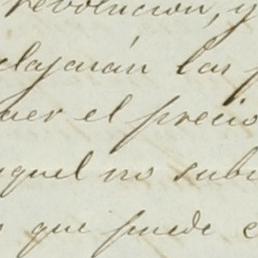 revolucion, y
elajarán las p
uer el precio
aquel no sub
que puede e